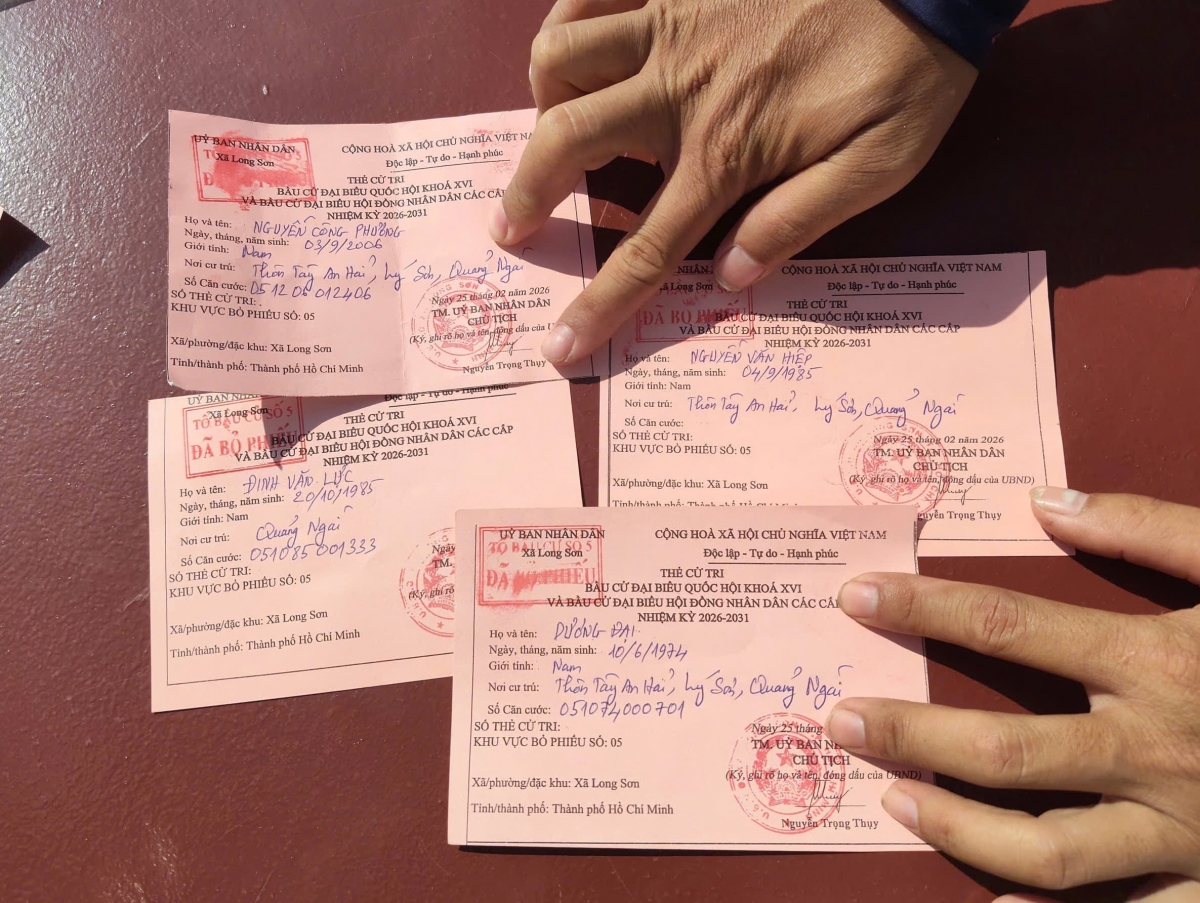 UỶ BAN NHÂN DÂN
Xã Long Sơn
TỔ BẦU CỬ SỐ 5
CỘNG HOÀ XÃ HỘI CHỦ NGHĨA VIỆT NAM
Độc lập - Tự do - Hạnh phúc
THẺ CỬ TRI
BẦU CỬ ĐẠI BIỂU QUỐC HỘI KHOÁ XVI
VÀ BẦU CỬ ĐẠI BIỂU HỘI ĐỒNG NHÂN DÂN CÁC CẤP
NHIỆM KỲ 2026-2031
Họ và tên: NGUYỄN CÔNG PHƯỢNG
Ngày, tháng, năm sinh: 03/9/2006
Giới tính: Nam
Nơi cư trú: Thôn Tây An Hải, Lý Sơn, Quảng Ngãi
Số Căn cước: 051206012406
SỐ THẺ CỬ TRI:
KHU VỰC BỎ PHIẾU SỐ: 05
Xã/phường/đặc khu: Xã Long Sơn
Tỉnh/thành phố: Thành phố Hồ Chí Minh
Ngày 25 tháng 02 năm 2026
TM. UỶ BAN NHÂN DÂN
CHỦ TỊCH
(Ký, ghi rõ họ và tên, đóng dấu của
Nguyễn Trọng Thụy
Xã Long Sơn
ĐÃ BỎ PHIẾU
CỘNG HOÀ XÃ HỘI CHỦ NGHĨA VIỆT NAM
Độc lập - Tự do - Hạnh phúc
THẺ CỬ TRI
BẦU CỬ ĐẠI BIỂU QUỐC HỘI KHOÁ XVI
VÀ BẦU CỬ ĐẠI BIỂU HỘI ĐỒNG NHÂN DÂN CÁC CẤP
NHIỆM KỲ 2026-2031
Họ và tên: NGUYỄN VĂN HIỆP
Ngày, tháng, năm sinh: 04/9/1985
Giới tính: Nam
Nơi cư trú: Thôn Tây An Hải, Lý Sơn, Quảng Ngãi
Số Căn cước:
SỐ THẺ CỬ TRI:
KHU VỰC BỎ PHIẾU SỐ: 05
Xã/phường/đặc khu: Xã Long Sơn
Tỉnh/thành phố: Thành phố Hồ Chí Minh
Ngày 25 tháng 02 năm 2026
TM. UỶ BAN NHÂN DÂN
CHỦ TỊCH
(Ký, ghi rõ họ và tên, đóng dấu của UBND)
Nguyễn Trọng Thụy
UỶ BAN NHÂN
Xã Long Sơn
TỔ BẦU CỬ SỐ 5
ĐÃ BỎ PHIẾU
Độc lập - Tự do - Hạnh phúc
THẺ CỬ TRI
BẦU CỬ ĐẠI BIỂU QUỐC HỘI KHOÁ XVI
VÀ BẦU CỬ ĐẠI BIỂU HỘI ĐỒNG NHÂN DÂN CÁC CẤP
NHIỆM KỲ 2026-2031
Họ và tên: ĐINH VĂN LỰC
Ngày, tháng, năm sinh: 20/10/1985
Giới tính: Nam
Nơi cư trú: Quảng Ngãi
Số Căn cước: 051085001333
SỐ THẺ CỬ TRI:
KHU VỰC BỎ PHIẾU SỐ: 05
Xã/phường/đặc khu: Xã Long Sơn
Tỉnh/thành phố: Thành phố Hồ Chí Minh
Ngày
TM.
(Ký, ghi
UỶ BAN NHÂN DÂN
Xã Long Sơn
TỔ BẦU CỬ SỐ 5
ĐÃ BỎ PHIẾU
CỘNG HOÀ XÃ HỘI CHỦ NGHĨA VIỆT NAM
Độc lập - Tự do - Hạnh phúc
THẺ CỬ TRI
BẦU CỬ ĐẠI BIỂU QUỐC HỘI KHOÁ XVI
VÀ BẦU CỬ ĐẠI BIỂU HỘI ĐỒNG NHÂN DÂN CÁC CẤP
NHIỆM KỲ 2026-2031
Họ và tên: DƯƠNG ĐẠI
Ngày, tháng, năm sinh: 10/6/1974
Giới tính: Nam
Nơi cư trú: Thôn Tây An Hải, Lý Sơn, Quảng Ngãi
Số Căn cước: 051074000701
SỐ THẺ CỬ TRI:
KHU VỰC BỎ PHIẾU SỐ: 05
Xã/phường/đặc khu: Xã Long Sơn
Tỉnh/thành phố: Thành phố Hồ Chí Minh
Ngày 25 tháng
TM. UỶ BAN
CHỦ TỊCH
(Ký, ghi rõ họ và tên, đóng dấu của UBND)
Nguyễn Trọng Thụy